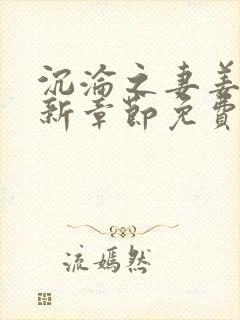 沉淪之妻姜
新章節免費
流嫣然